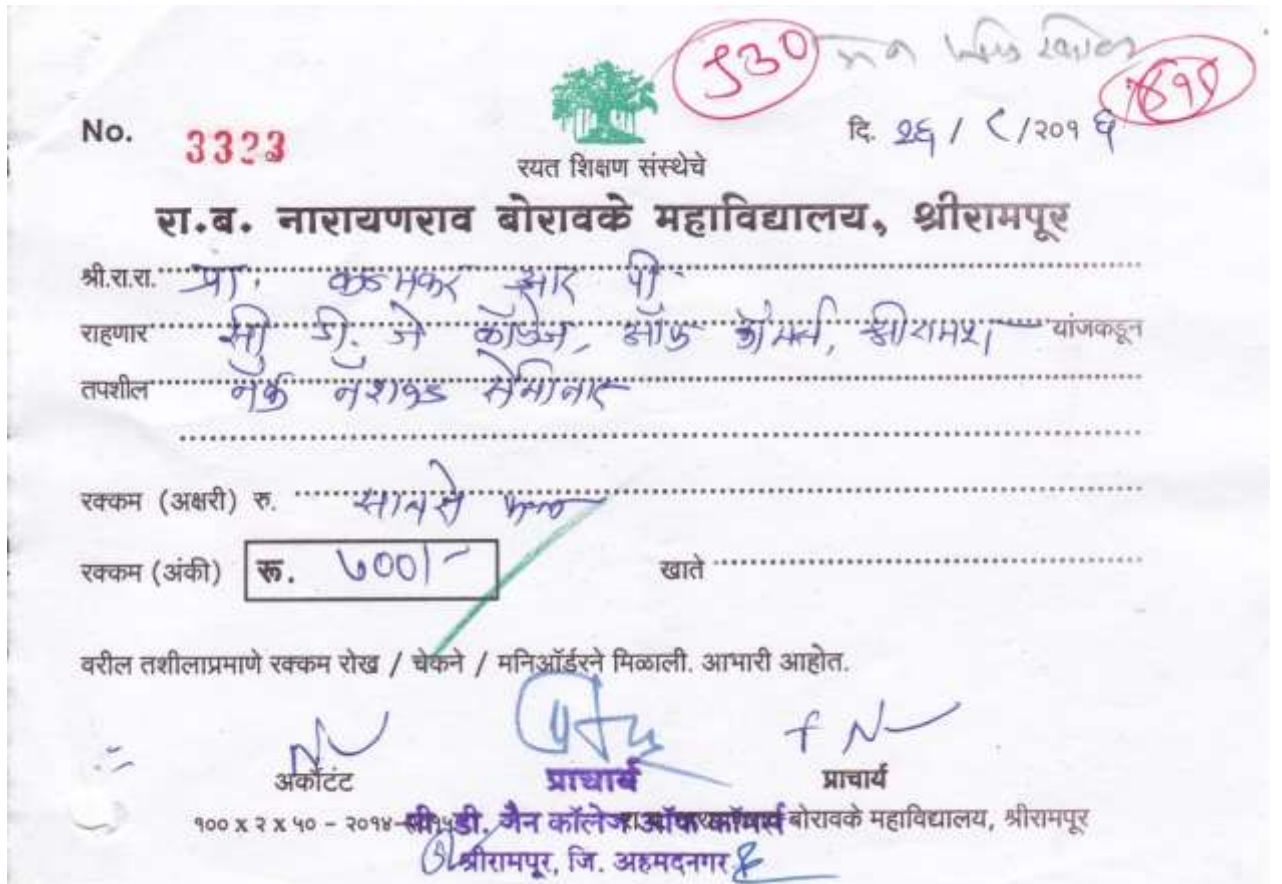 530
No. 3323
दि. २६ / ८ /२०१ ६
रयत शिक्षण संस्थेचे
रा.ब. नारायणराव बोरावके महाविद्यालय, श्रीरामपूर
श्री.रा.रा. प्रा. कडमकर आर पी
राहणार सी डी. जे कॉलेज, ऑफ कॉमर्स, यांजकडून
तपशील सेमीनार
रक्कम (अक्षरी) रु. सातशे
रक्कम (अंकी) रू. ७००/- खाते
वरील तशीलाप्रमाणे रक्कम रोख / चेकने / मनिऑर्डरने मिळाली. आभारी आहोत.
अकौंटंट प्राचार्य प्राचार्य
१०० x २ x ५० – २०१४ सी. डी. जैन कॉलेज ऑफ कॉमर्स बोरावके महाविद्यालय, श्रीरामपूर
श्रीरामपूर, जि. अहमदनगर